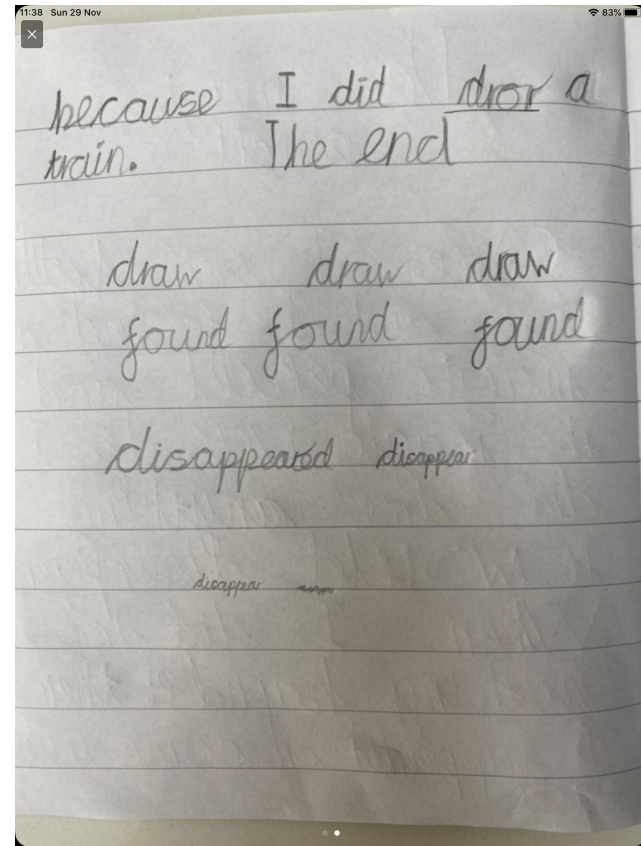 11:38 Sun 29 Nov 83%
because I did dror a
train. The end
draw draw draw
found found found
disappeared disappear
disappear